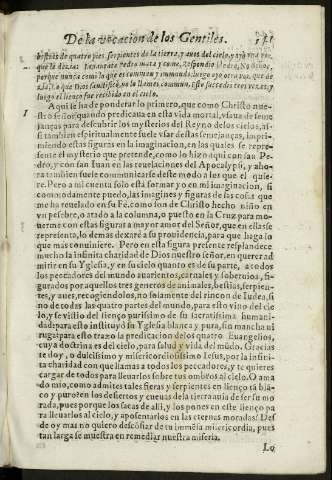 De la vocacion de los Gentiles.
bestias de quatro pies, serpientes de la tierra, y aues del cielo, y oyò una voz
que le dezia: Leuantate Pedro mata y come. Respondio Pedro, No Señor,
porque nunca comi lo que es comun y immundo: luego oyò otra voz que de
zia, Lo que Dios santificò, no lo llames commun. Este sucedio tres vezes, y
luego el lienço fue recebido en el cielo.
1
Aqui se ha de ponderar lo primero, que como Christo nue-
stro señor quando predicaua en esta vida mortal, vsaua de seme
janças para descubrir los mysterios del Reyno de los cielos, as-
si tambien espiritualmente suele vsar destas semejanças, impri-
miendo estas figuras en la imaginacion, en las quales se repre-
sente el mysterio que pretende, como lo hizo aqui con san Pe-
dro, y con san Iuan en las reuelaciones del Apocalypsi, y aho-
ra tambien suele comunicarse deste modo a los que el quie-
re. Pero a mi cuenta solo està formar yo en mi imaginacion, si
commodamente puedo, las imagines y figuras de las cosas que
me ha reuelado en su Fe. como son de Christo hecho niño en
vn pesebre, o atado a la columna, o puesto en la Cruz para mo-
uerme con estas figuras a mayor amor del Señor, que en ellas se
representa, lo demas dexarè a su prouidencia, para que haga lo
que mas conuiniere. Pero en esta figura presente resplandece
mucho la infinita charidad de Dios nuestro señor, en querer ad
mitir en su Yglesia, y en su cielo quanto es de su parte, a todos
los peccadores del mundo auarientos, carnales y soberuios, fi-
gurados por aquellos tres generos de animales, bestias, serpien-
tes, y aues, recogiendolos, no solamente del rincon de Iudea, si
no de todas las quatro partes del mundo, para esto vino del cie
lo, y se vistio del lienço purissimo de su sacratissima humani-
dad; para esto instituyò su Yglesia blanca y pura, sin mancha ni
ruga; para esto trazo la predicacion de los quatro Euangelios,
cuya doctrina es del cielo, para salud y vida del mũdo. Gracias
te doy, o dulcissimo y misericordiosissimo Iesus, por la infini-
ta charidad con que llamas a todos los peccadores, y te quieres
cargar de todos para lleuarlos sobre tus ombros al cielo. O ama
do mio, como admites tales fieras y serpientes en lienço tã blã-
co y puro? en los desiertos y cueuas de la tierra auia de ser su mo
rada, pues porque los sacas de alli, y los pones en este lienço pa
ra lleuarlos al cielo, y aposentarlos en las eternas moradas? Des
de oy mas no quiero descõfiar de tu immẽsa misericordia, pues
tan larga se muestra en remediar nuestra miseria.
Lo